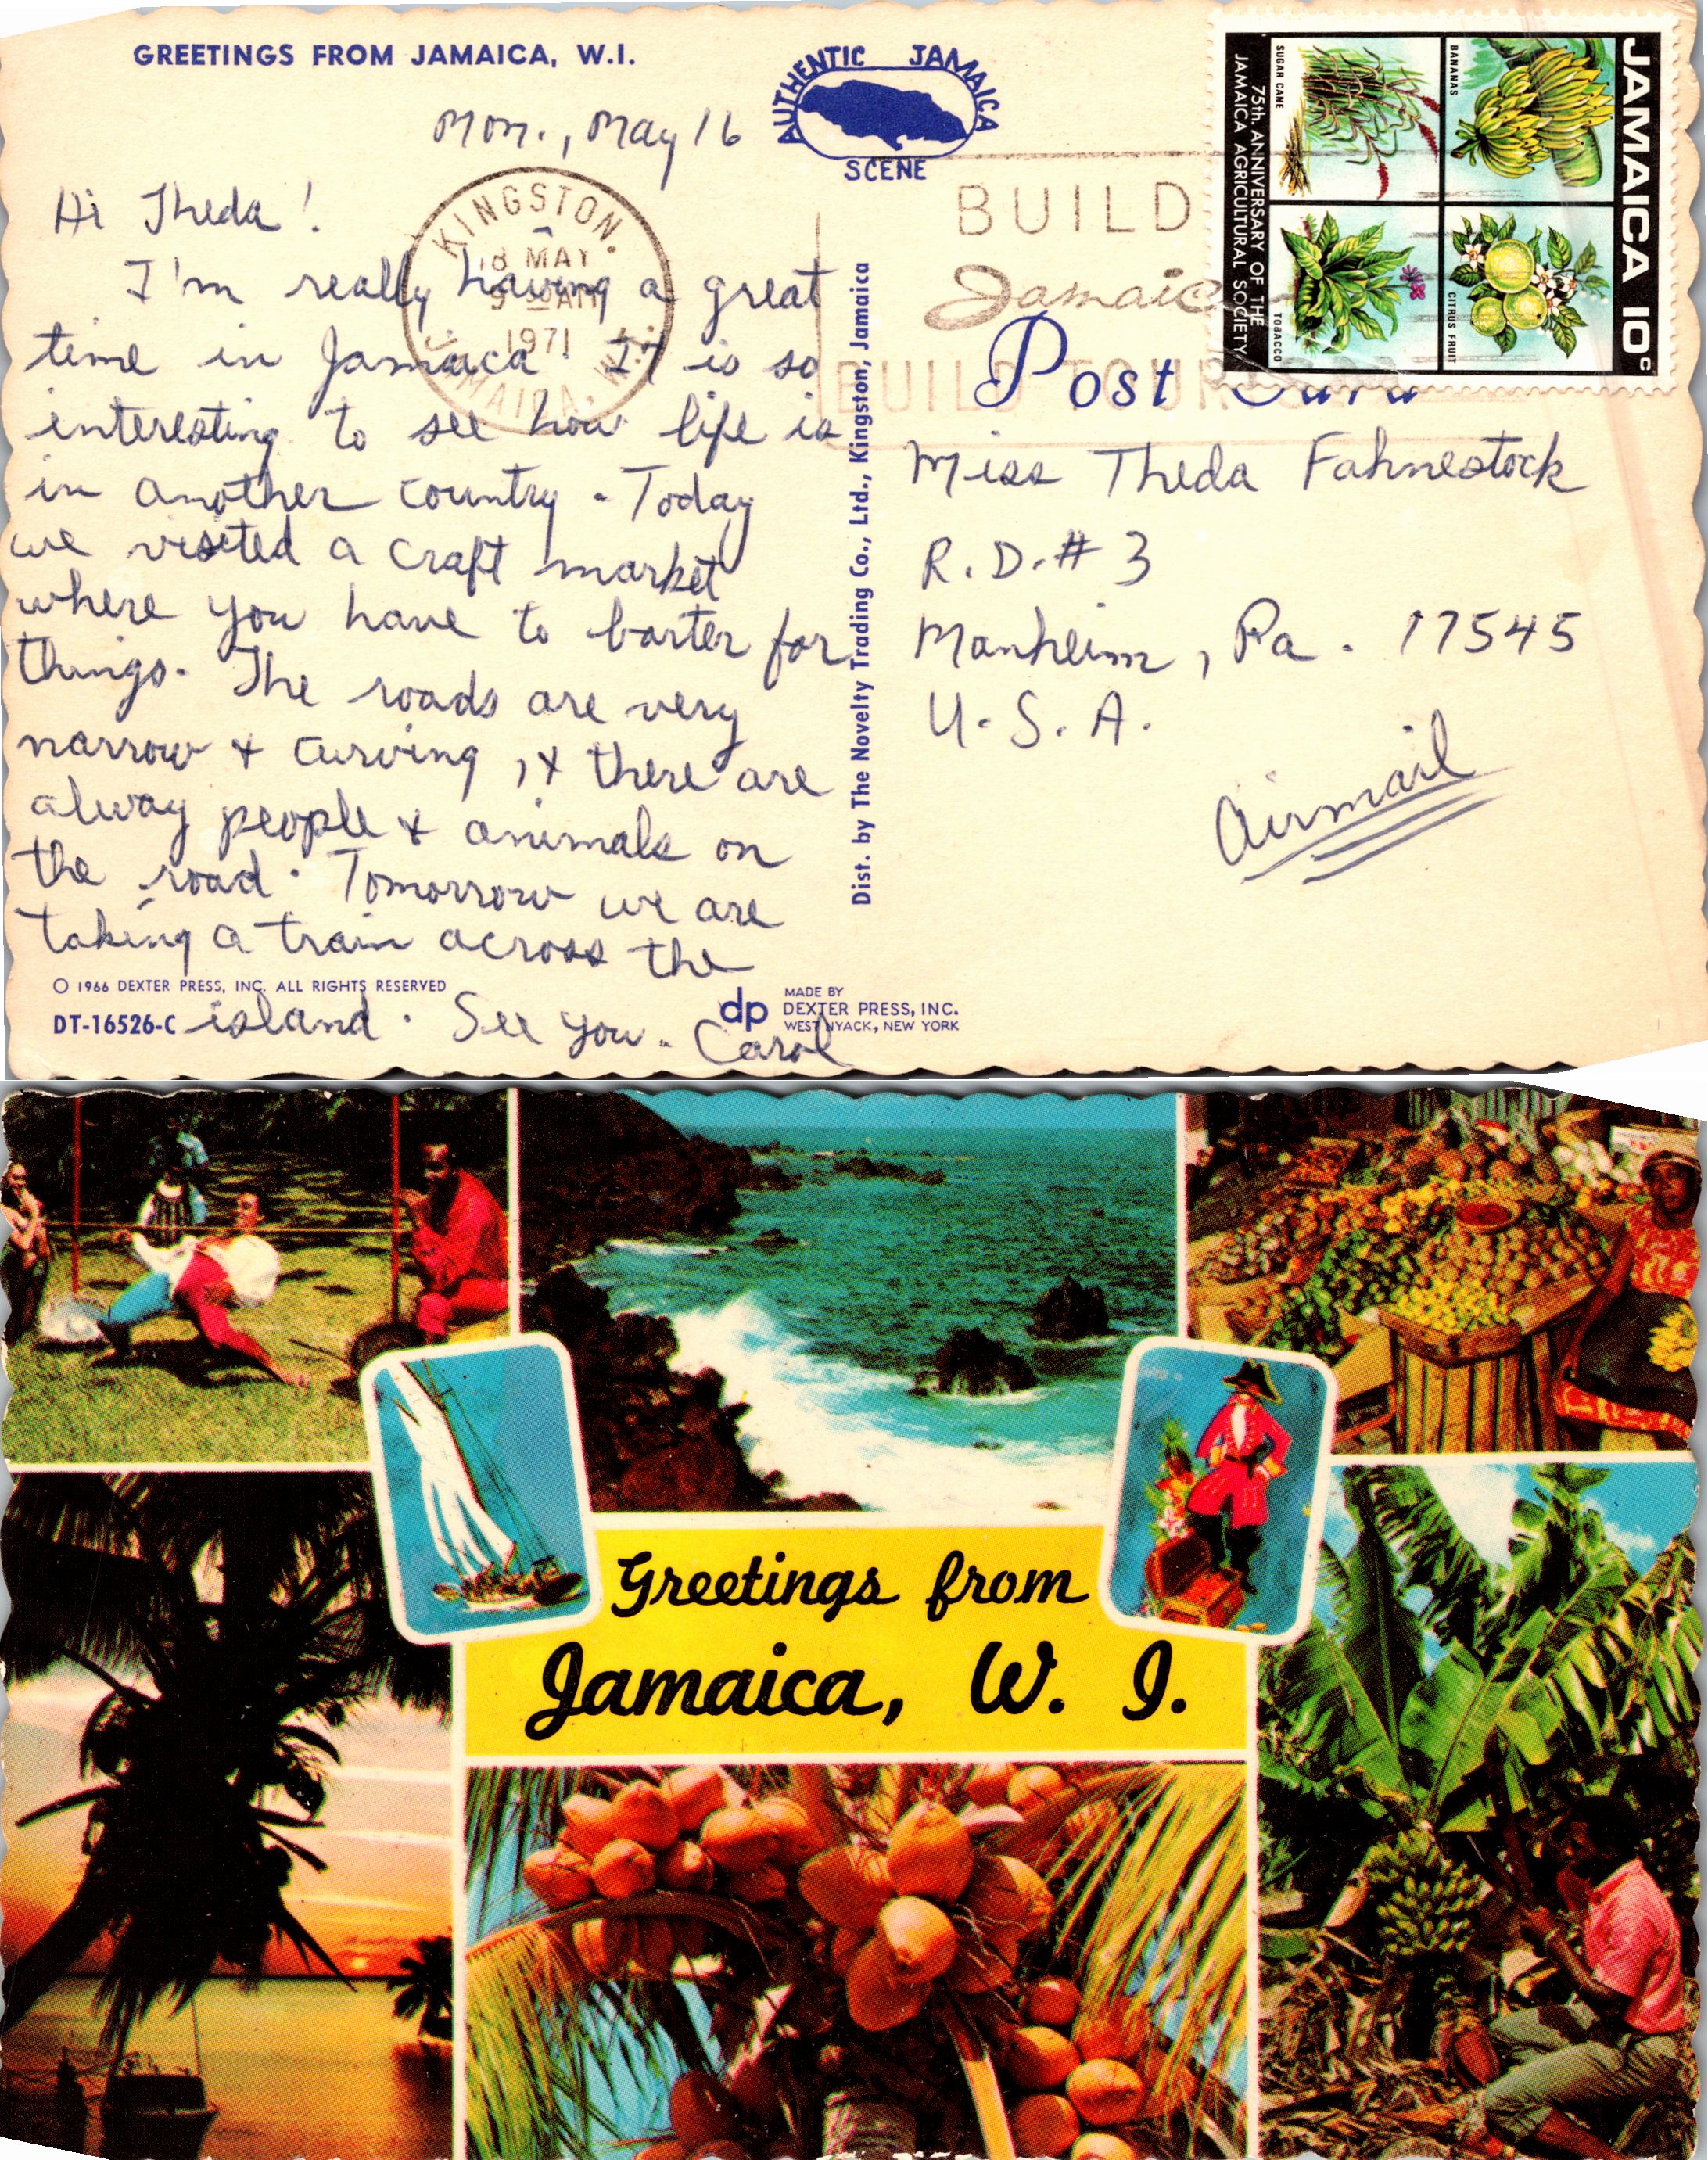 GREETINGS FROM JAMAICA, W.I.
AUTHENTIC JAMAICA
SCENE
Mon., May 16
Hi Theda!
I'm really having a great
time in Jamaica. It is so
interesting to see how life is
in another country. Today
we visited a craft market
where you have to barter for
things. The roads are very
narrow & curving, & there are
alway people & animals on
the road. Tomorrow we are
taking a train across the
island. See you. Carol
© 1966 DEXTER PRESS, INC. ALL RIGHTS RESERVED
DT-16526-C
dp
MADE BY
DEXTER PRESS, INC.
WEST NYACK, NEW YORK
KINGSTON.
18 MAY
AM
1971
JAMAICA. W.I.
Dist. by The Novelty Trading Co., Ltd., Kingston, Jamaica
BUILD
Jamaic
BUILD TOUR
Post Card
JAMAICA 10c
BANANAS
CITRUS FRUIT
SUGAR CANE
TOBACCO
75th ANNIVERSARY OF THE
JAMAICA AGRICULTURAL SOCIETY
Miss Theda Fahnestock
R.D.# 3
Manheim, Pa. 17545
U.S.A.
Airmail
Greetings from
Jamaica, W. I.